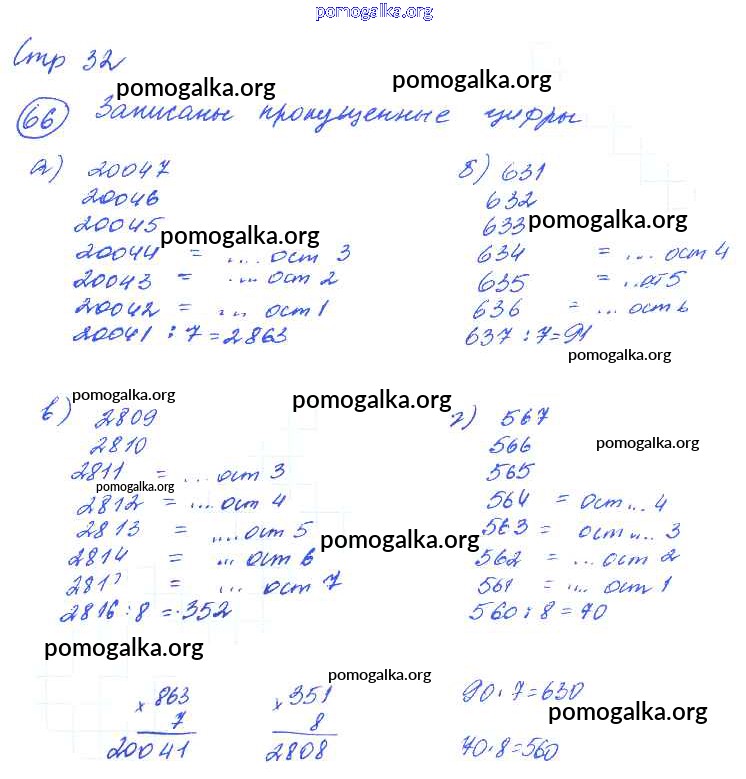 pomogalka.org
Стр 32
pomogalka.org pomogalka.org
66 Записаны пропущенные цифры
а) 20047
20046
20045
pomogalka.org
20044 = .... ост 3
20043 = .... ост 2
20042 = ... ост 1
20041 : 7 = 2863
б) 631
632
633 pomogalka.org
634 = ... ост 4
635 = ...ост5
636 = ... ост 6
637 : 7 = 91
pomogalka.org
pomogalka.org pomogalka.org
в) 2809
2810
2811 = ... ост 3
pomogalka.org
2812 = .... ост 4
2813 = .... ост 5
2814 = ... ост 6
= ... ост 7
2816 : 8 = 352
г) 567
566 pomogalka.org
565
564 = ост... 4
563 = ост ... 3
pomogalka.org
562 = ... ост 2
561 = ... ост 1
560 : 8 = 70
pomogalka.org
pomogalka.org
× 863
7
20041
× 351
8
2808
90 · 7 = 630
pomogalka.org
70 · 8 = 560